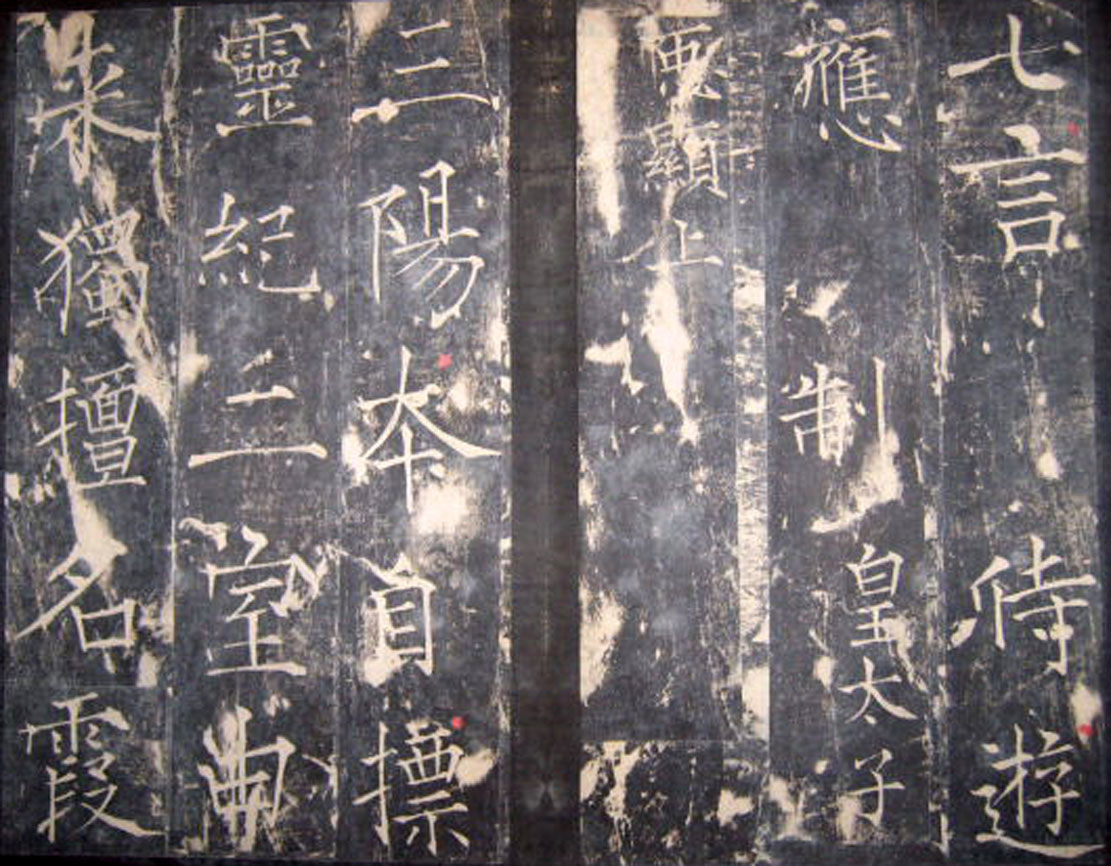 七言侍遊
應制皇太子
𢘑顯上
三陽夲自摽
靈紀二室由
来獨擅名霞